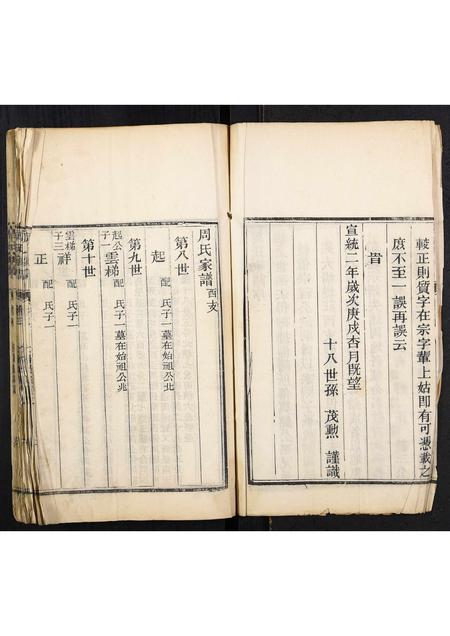 較正則質字在宗字輩上姑卽有可憑載之
庶不至一誤再誤云
旹
宣統二年歲次庚戌杏月旣望
十八世孫 茂勲 謹識
周氏家譜 酉支
第八世
起 配 氏子一墓在始祖公北
第九世
起公子一 雲梯 配 氏子一墓在始祖公兆
第十世
雲梯子三 祥 配 氏子一
正 配 氏子一